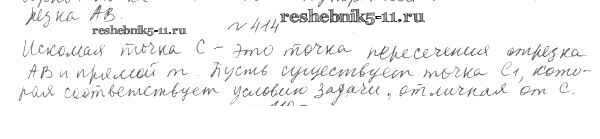 резка АВ.
№ 414
reshebnik5-11.ru
reshebnik5-11.ru
Искомая точка С - это точка пересечения отрезка
АВ и прямой m. Пусть существует точка С1, кото-
рая соответствует условию задачи, отличная от С.